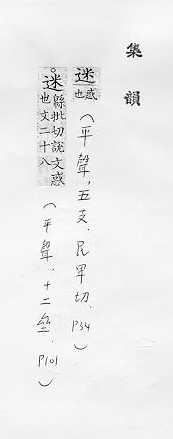 集韻
迷惑也(平聲,五支,民卑切,P34)
。迷緜批切說文惑也文二十八(平聲,十二齊,P101)